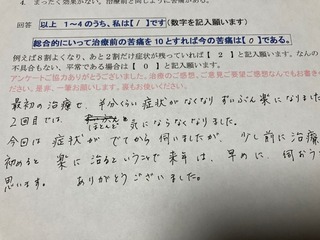 4. まったく効果がない。治療前と同じように苦痛がある。
回答 以上 1〜4のうち、私は【 / 】です（数字を記入願います）
総合的にいって治療前の苦痛を10とすれば今の苦痛は【 0 】である。
例えば8割よくなり、あと2割だけ症状が残っていれば【 2 】と記入願います。なんの
不具合もない、平常である場合は【 0 】と記入願います。
アンケートご協力ありがとうございました。治療のご感想、ご意見ご要望ご感想なんでもお書きく
ださい。是非、一筆お願いします。裏もお使いください。
最初の治療で、半分くらい症状がなくなり ずいぶん楽になりました
2回目では、ほとんど気にならなくなりました。
今回は症状がでてから伺いましたが、少し前に治療
初めると楽に治るということで来年は、早めに、伺おう
思います。 ありがとうございました。